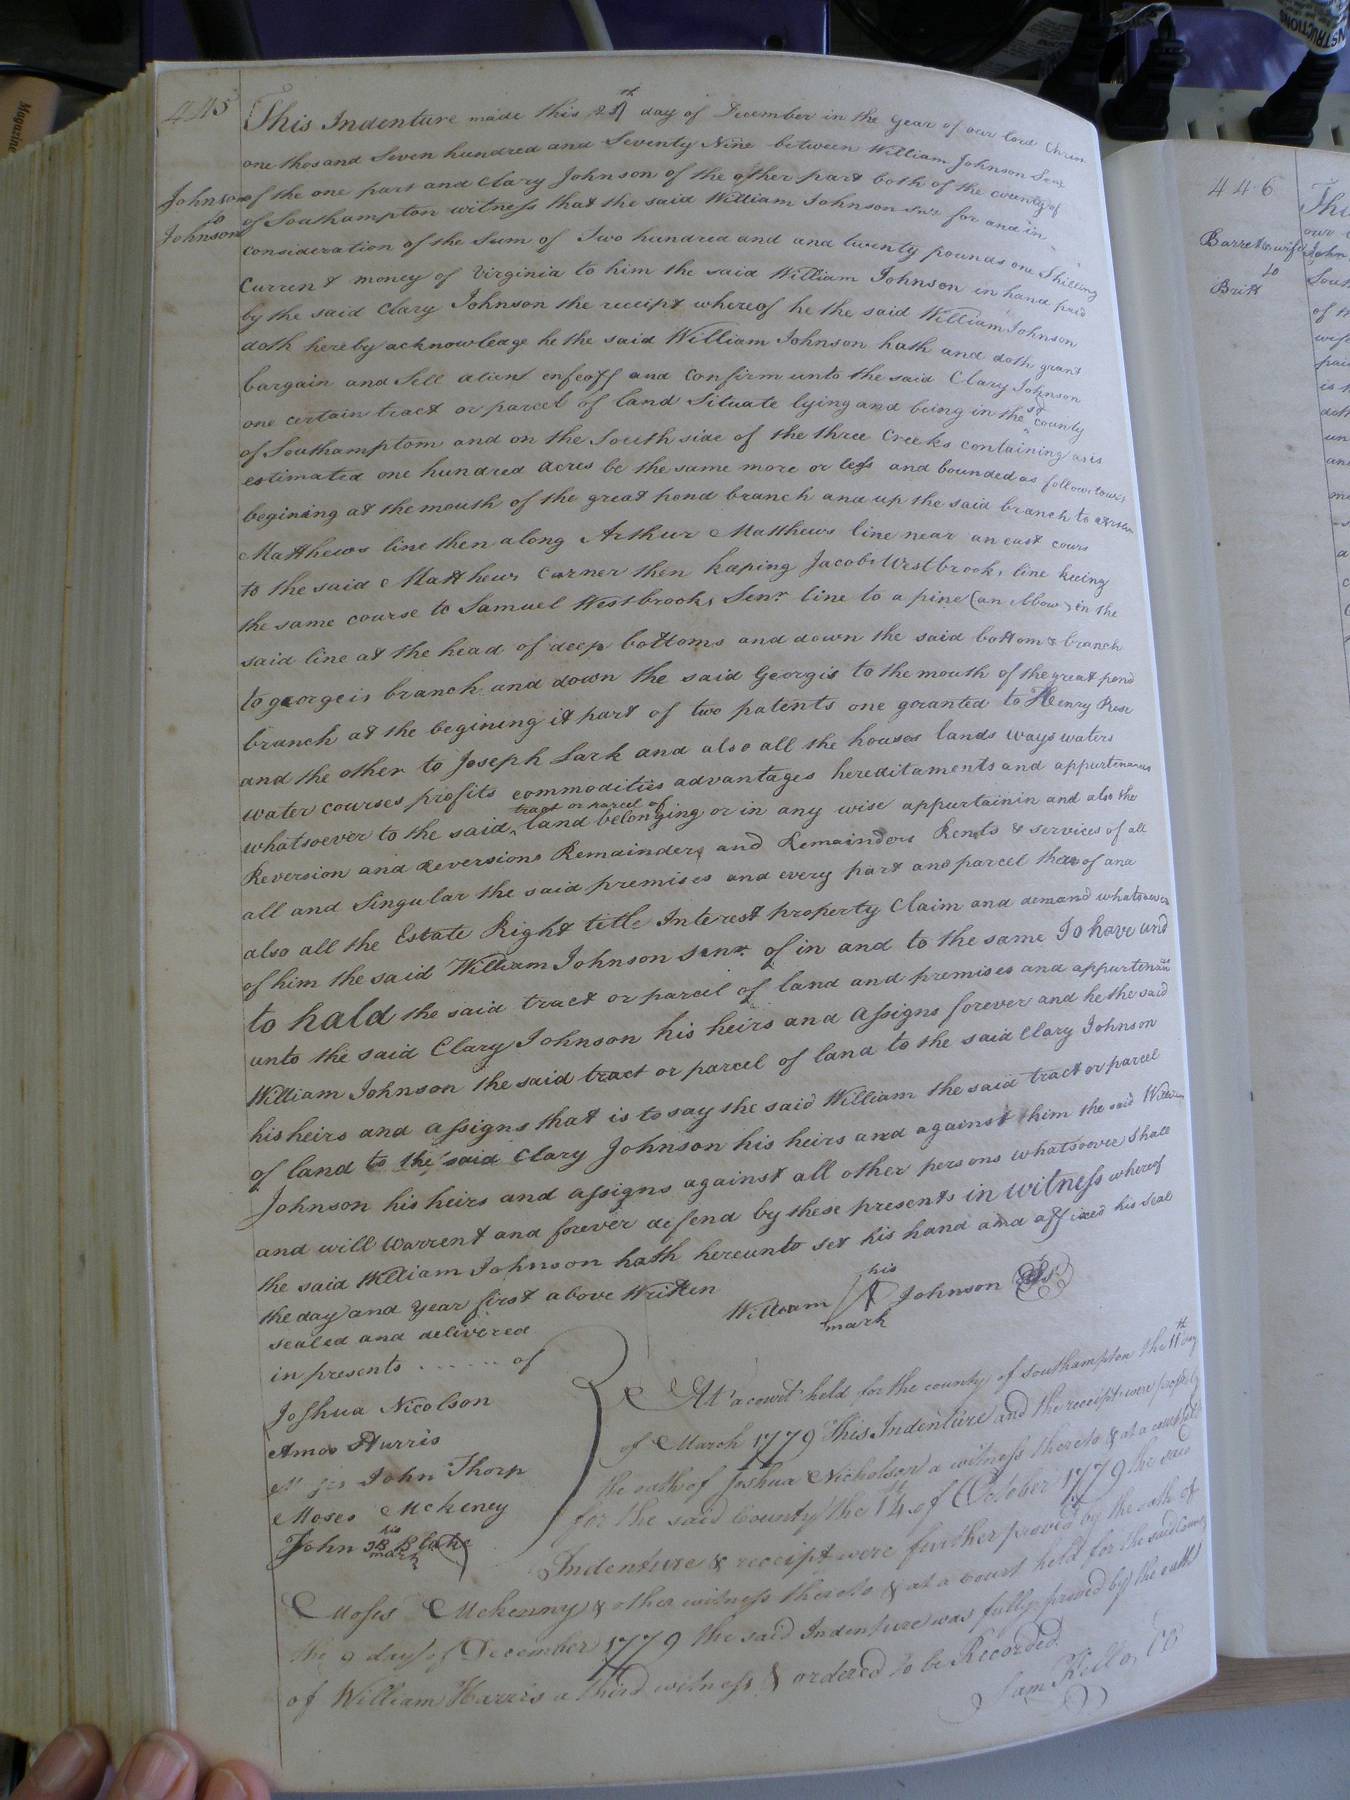 445
Johnson
to
Johnson
This Indenture made this 25th day of December in the year of our lord Chrise
one thosand Seven hundred and Seventy Nine between William Johnson Senr
of the one part and Clary Johnson of the other part both of the county of
of Southampton witness that the said William Johnson snr for and in
consideration of the Sum of Two hundred and and twenty pounds one Shilling
Current money of Virginia to him the said William Johnson in hand paid
by the said Clary Johnson the receipt whereof he the said William Johnson
doth hereby acknowledge he the said William Johnson hath and doth grant
bargain and Sell alient enfeoff and Confirm unto the said Clary Johnson
one certain tract or parcel of land Situate lying and being in the county
of Southamptom and on the South side of the three Creeks containing as is
estimated one hundred acres be the same more or less and bounded as follows
begining at the mouth of the great pond branch and up the said branch to
Matthews line then along Arthur Matthews line near an east cours
to the said Matthews Carner then kaping Jacobs Westbrooks line keeing
the same course to Samuel Westbrooks Senr line to a pine (an Mbow) in the
said line at the head of deep bottoms and down the said bottom & branch
to georgeis branch and down the said Georgis to the mouth of the great pond
branch at the begining it part of two patents one granted to Henry Rose
and the other to Joseph Lark and also all the houses lands ways waters
water courses profits commodities advantages hereditaments and appurtenances
tract or parcel of
whatsoever to the said land belonging or in any wise appurtainin and also the
Reversion and Reversions Remainders and Remainders Rents & services of all
all and Singular the said premises and every part and parcel thereof and
also all the Estate Right title Interest property Claim and demand whatsoever
of him the said William Johnson senr. of in and to the same To have and
to hald the said tract or parcel of land and premises and appurtenan
unto the said Clary Johnson his heirs and assigns forever and he the said
William Johnson the said tract or parcel of land to the said Clary Johnson
his heirs and assigns that is to say the said William the said tract or parcel
of land to the said Clary Johnson his heirs and against him the said William
Johnson his heirs and assigns against all other persons whatsoever shall
and will Warrent and forever defend by these presents in witness whereof
the said William Johnson hath hereunto set his hand and affixed his seal
the day and year first above Written
his
William Johnson
mark
sealed and delivered
in presents ....... of
Joshua Nicolson
Amos Harris
John Thorp
Moses Mckeney
his
John JB Blake
mark
At a court held for the county of Southampton the 11th day
of March 1779 This Indenture and the receipt were proved by
the oath of Joshua Nicholson a witness thereto & at a court held
for the said County the 14th of October 1779 the said
Indenture & receipt were further proved by the oath of
Moses Mckenny & other witness thereto & at a Court held for the said County
the 9 day of December 1779 the said Indenture was fully proved by the oath
of William Harris a third witness & ordered to be Recorded
Sam Kello CC
446
Barret & wife
to
Britt